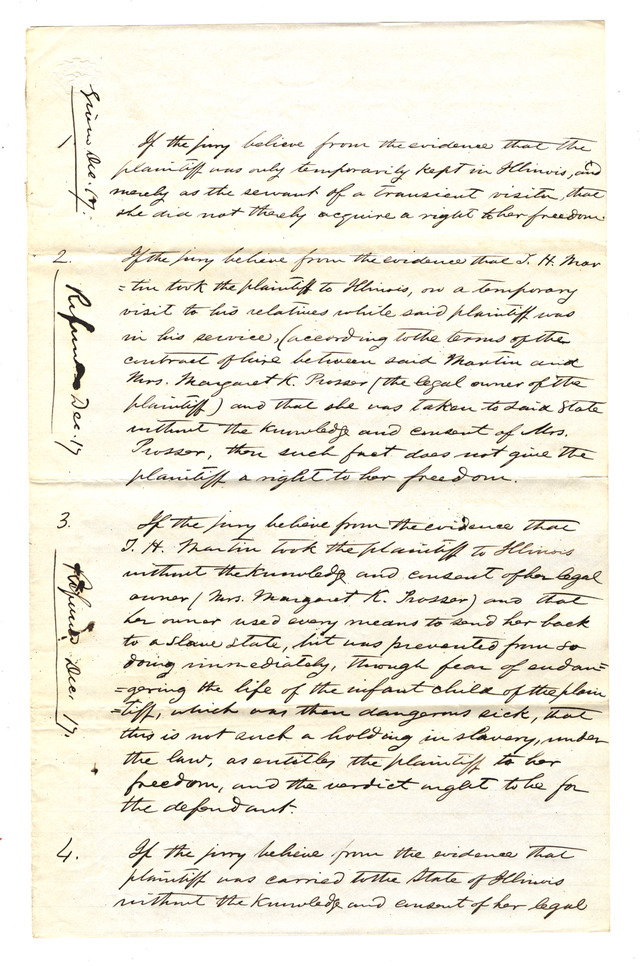 Given Dec. 17.
1
If the jury believe from the evidence that the
plaintiff was only temporarily kept in Illinois, and
merely as the servant of a transient visitor, that
she did not thereby acquire a right to her freedom.
2.
Refused Dec. 17
If the jury believe from the evidence that T. H. Mar
=tin took the plaintiff to Illinois, on a temporary
visit to his relatives while said plaintiff was
in his service, (according to the terms of the
contract of hire between said Martin and
Mrs. Margaret K. Prosser (the legal owner of the
plaintiff) and that she was taken to said State
without the knowledge and consent of Mrs.
Prosser, then such fact does not give the
plaintiff a right to her freedom.
3.
Refused Dec. 17.
If the jury believe from the evidence that
T. H. Martin took the plaintiff to Illinois
without the knowledge and consent of her legal
owner (Mrs. Margaret K. Prosser) and that
her owner used every means to send her back
to a slave State, but was prevented from so
doing immediately, through fear of endan=
=gering the life of the infant child of the plain
=tiff, which was then dangerous sick, that
this is not such a holding in slavery, under
the law, as entitles the plaintiff to her
freedom, and the verdict ought to be for
the defendant.
4.
If the jury believe from the evidence that
plaintiff was carried to the State of Illinois
without the knowledge and consent of her legal